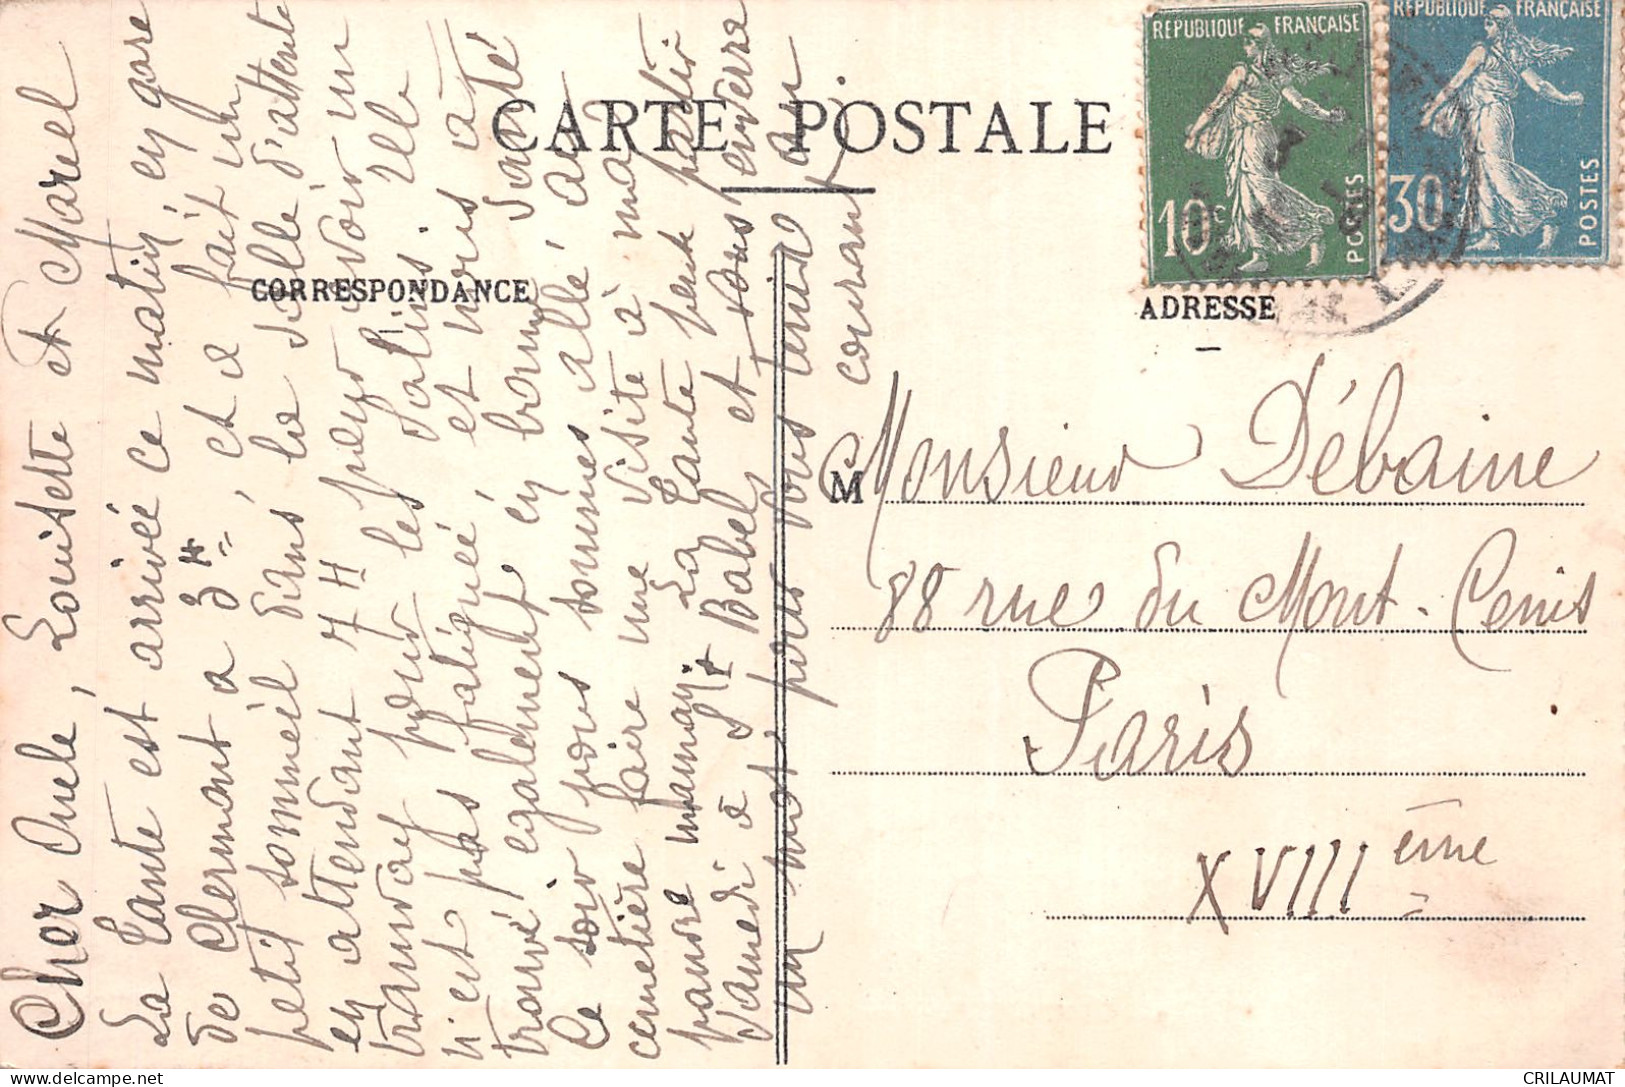 CARTE POSTALE
CORRESPONDANCE
ADRESSE
REPUBLIQUE FRANÇAISE
10c
POSTES
REPUBLIQUE FRANÇAISE
30
POSTES
Cher Oncle, Louisette et Marcel
La Tante est arrivée ce matin, en gare
de Clermont a 3H, et a fait un
petit sommeil dans la salle d'attente
en attendant 7H pour avoir un
tramway pour les Salins. elle
n'est pas fatiguée, et nous a
trouvé également en bonne santé
Ce soir nous sommes allé au
cemetière faire une visite à ma
pauvre maman. La Tante peut partir
Samedi à St Babel et vous enverra
un mot pour vous tenir au
courant
M
Monsieur Débaine
88 rue du Mont-Cenis
Paris
XVIIIème
CRILAUMAT